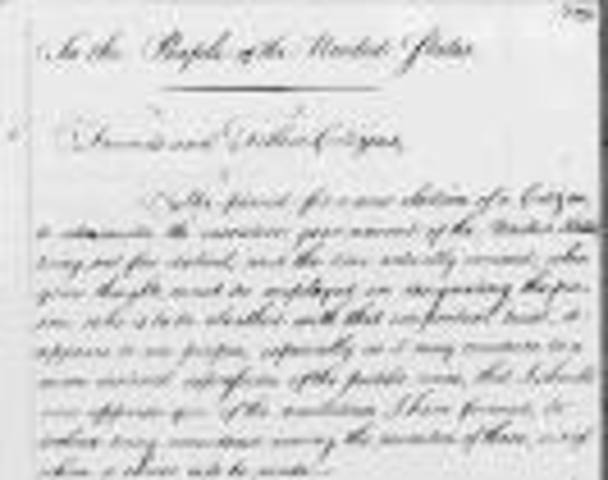 To the People of the United States
Friends and Fellow Citizens,
The period for a new election of a Citizen
to administer the executive government of the United States
being not far distant, and the time actually arrived, when
your thoughts must be employed in designating the per-
son, who is to be cloathed with that important trust, it
appears to me proper, especially as it may conduce to a
more distinct expression of the public voice, that I should
now apprise you of the resolution I have formed, to
decline being considered among the number of those, out of
whom a choice is to be made.